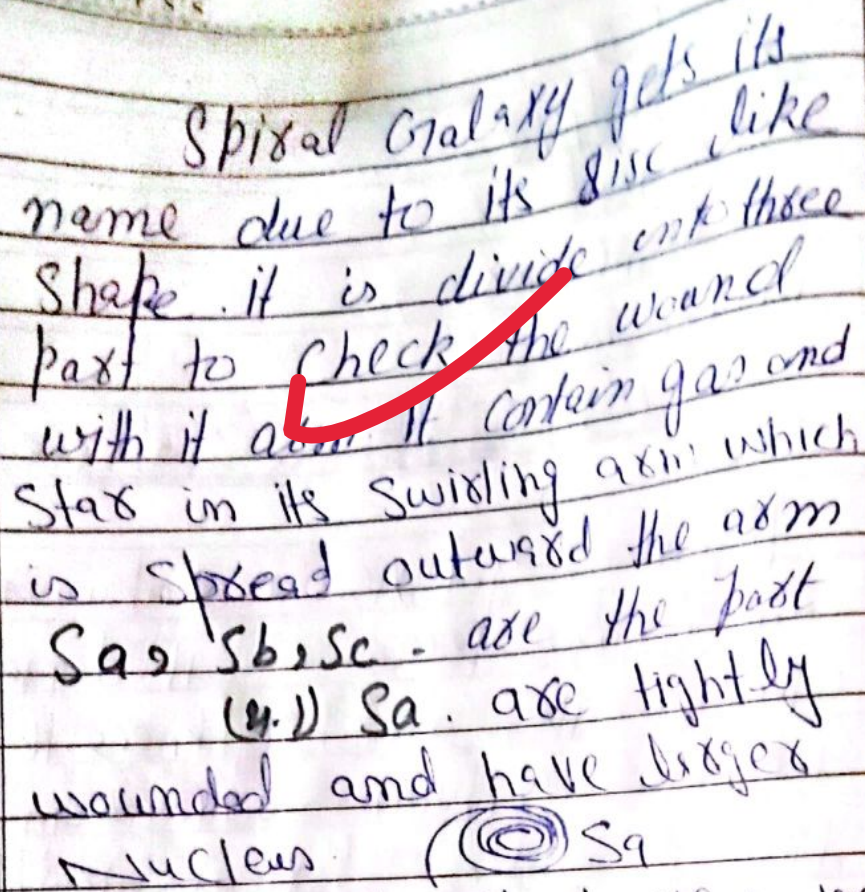 Spiral Galaxy gets its
name due to its disc like
Shape. it is divide into three
part to Check the wound
with it arm. It contain gas and
Star in its swirling arm which
is Spread outward the arm
Sa, Sb, Sc. are the part
(4.1) Sa. are tightly
wounded and have larger
Nucleus. Sa